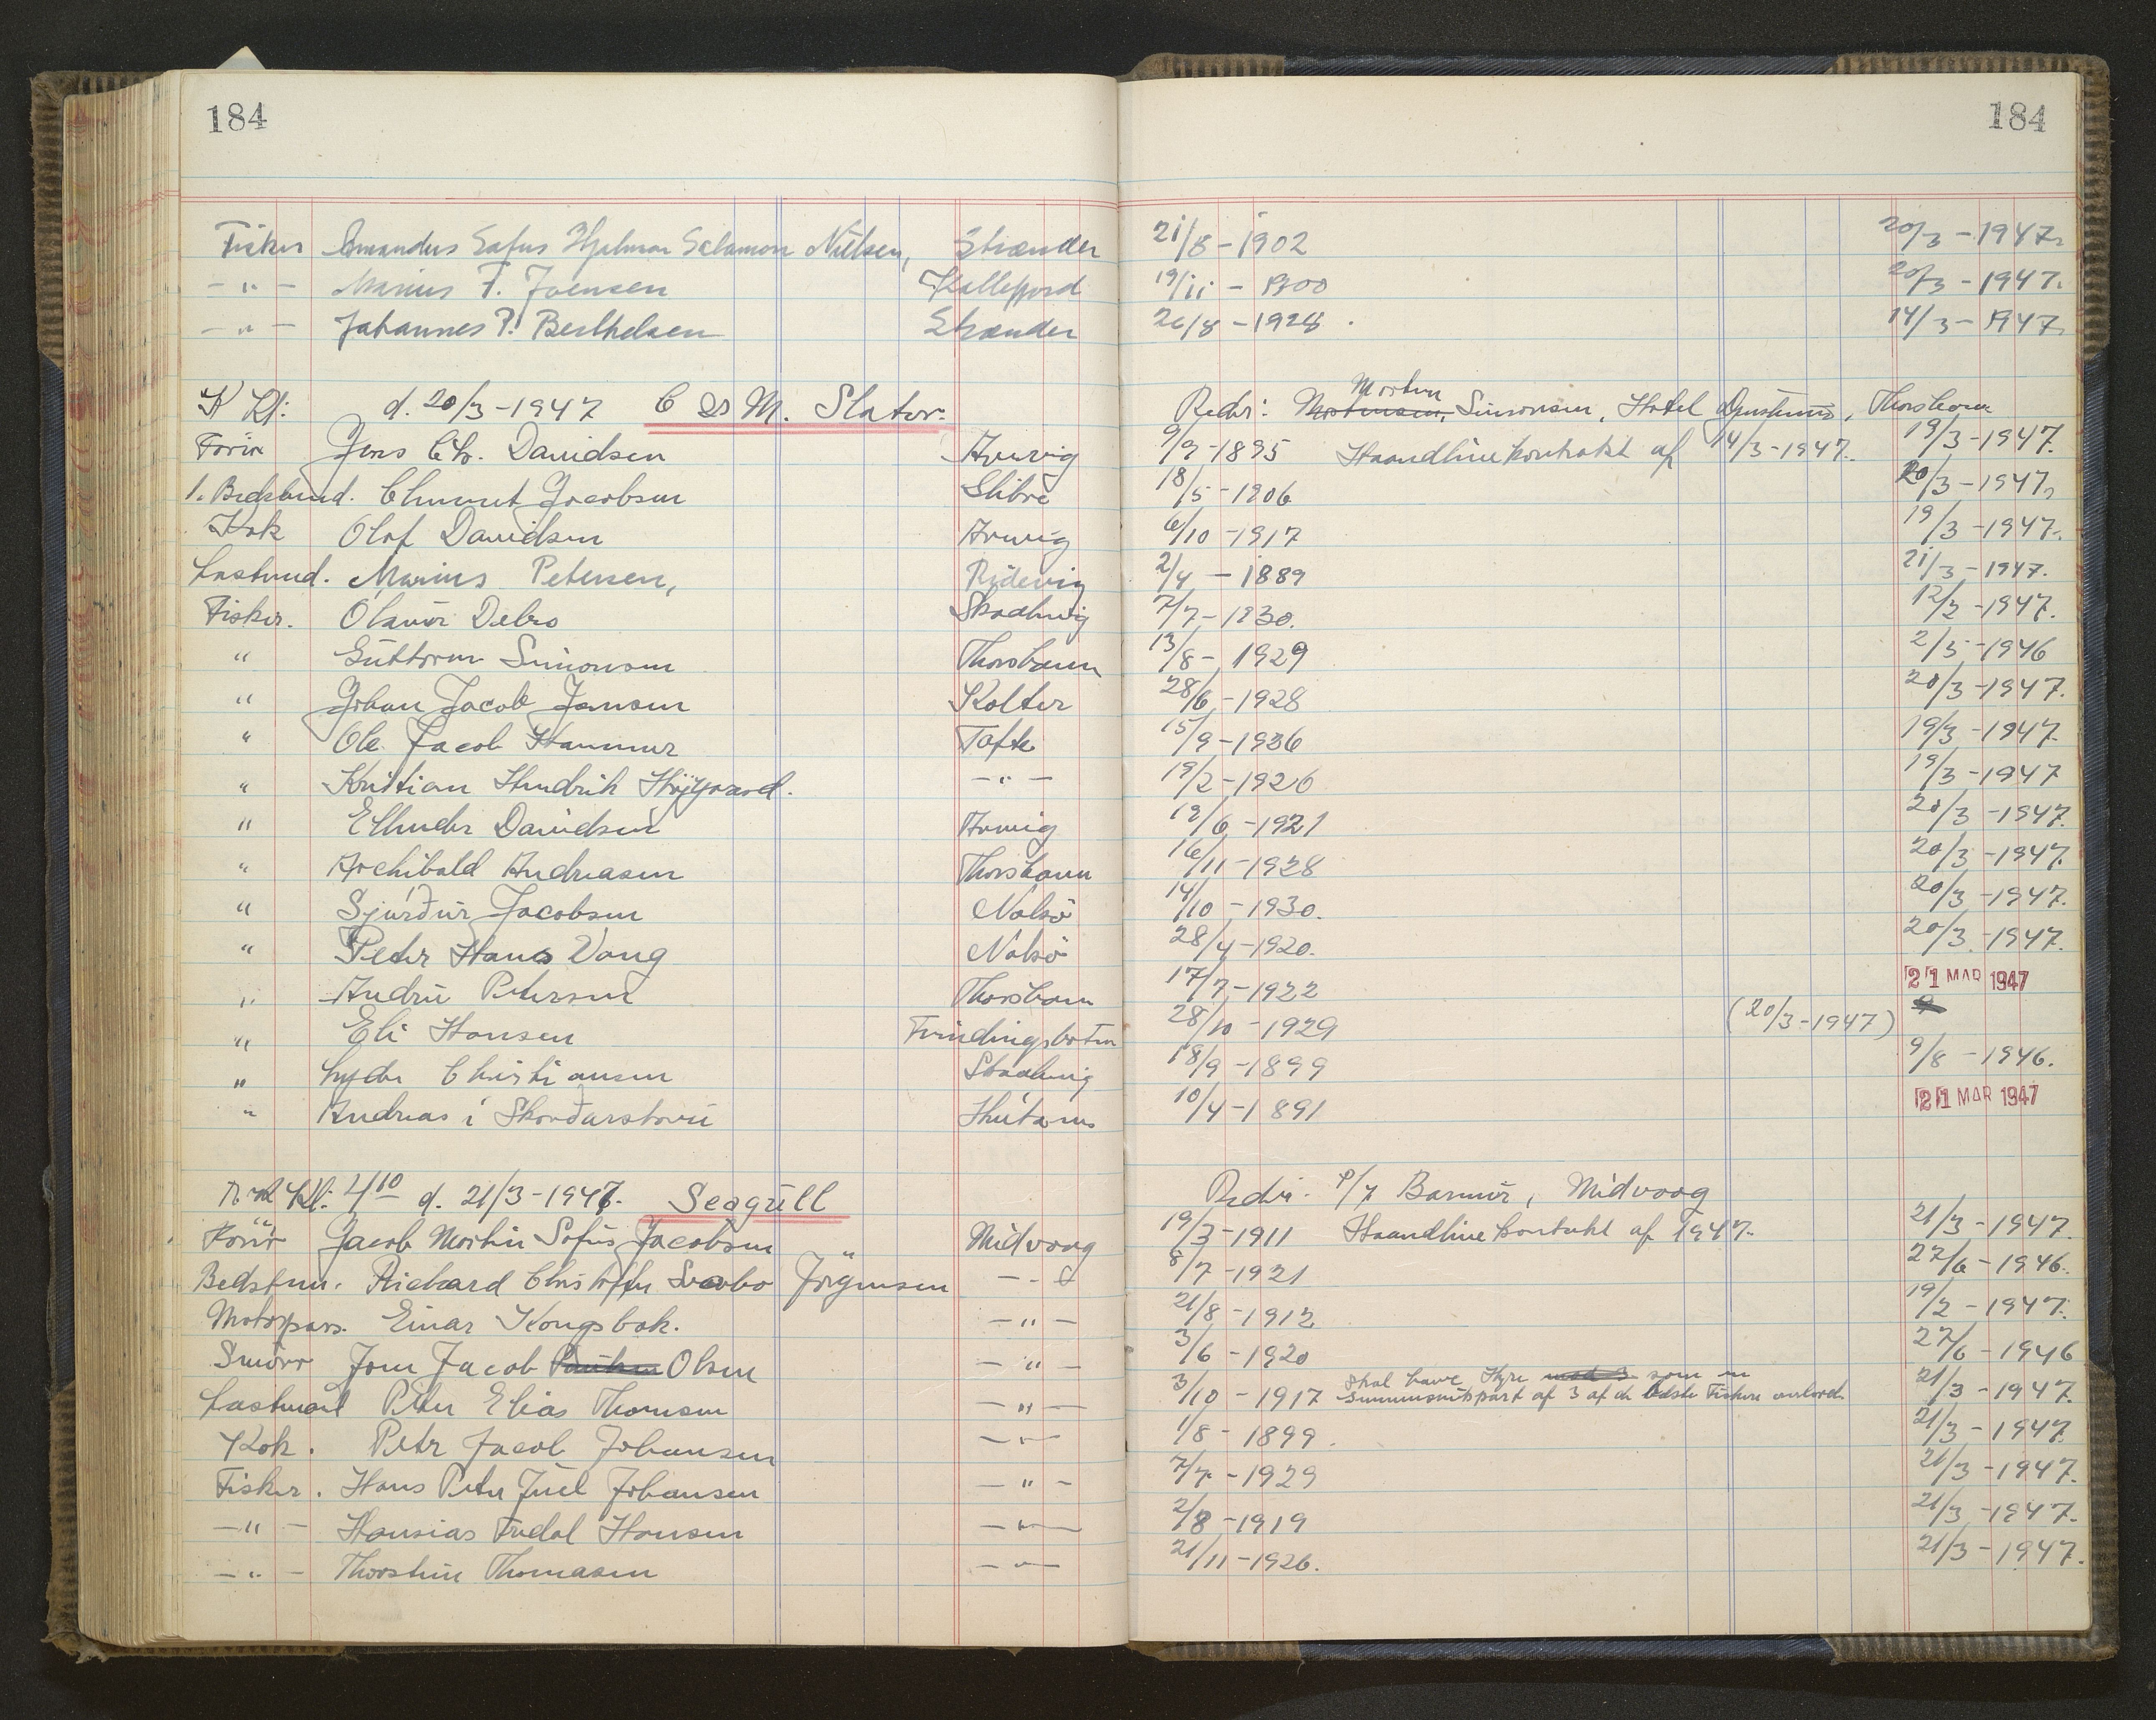 184
184
Fisker Amandus Sofus Hjalmar Salamon Nielsen, Strænder 21/8-1902 20/3-1947.
-"- Marius F. Joensen Kollefjord 19/11-1900 20/3-1947.
-"- Johannes P. Berthelsen Strænder 26/8-1928. 14/3-1947.
Kl: d. 20/3-1947 C & M. Slater. Reder: Mortensen, Morten Simonsen, Hotel Djurhuus, Thorshavn
Förer Jens Chr. Davidsen Arvevig 9/9-1895 Haandlinekontrakt af 14/3-1947. 19/3-1947.
1. Bedstmd. Clement Jacobsen Slibre 18/5-1906 20/3-1947,
Kok Olaf Davidsen Arvevig 6/10-1917 19/3-1947.
Lastemd. Marius Petersen, Ridevig 2/4-1889 21/3-1947.
Fisker. Olavur Debes Skaalevig 7/7-1930. 12/2-1947.
" Guttorm Simonsen Thorshavn 13/8-1929 2/5-1946
" Johan Jacob Jensen Kolter 28/6-1928 20/3-1947.
" Ole Jacob Hammer Tofte 15/9-1936 19/3-1947.
" Kristian Hendrik Höjgaard. -"- 19/2-1926 19/3-1947
" Ellinder Davidsen Arvevig 19/6-1921 20/3-1947.
" Archibald Andreasen Thorshavn 16/11-1928 20/3-1947.
" Sjúrður Jacobsen Nolsö 14/10-1930. 20/3-1947.
" Peter Hans Vang Nolsö 28/4-1920. 20/3-1947.
" Andrew Petersen Thorshavn 17/7-1922 21 MAR 1947
" Eli Hansen Fundingsbotn 28/10-1929 (20/3-1947)
" Lyder Christiansen Skaalevig 18/9-1899 9/8-1946.
" Andreas í Skorðarstovu Hútarns 10/4-1891 21 MAR 1947
Kl: 4 10 d. 21/3-1947. Seagull Reder. P/F Bármur, Midvaag
Förer Jacob Martin Sofus Jacobsen Midvaag 19/3-1911 Haandlinekontrakt af 1947. 21/3-1947.
Bedstm. Richard Christoffer Svabo Jörgensen -"- 8/7-1921 27/6-1946.
Motorpass. Einar Kongsbak. -"- 21/8-1912 19/2-1947.
Smörer Jens Jacob Olsen -"- 3/6-1920 27/6-1946
Lastmand Peter Elias Thomsen -"- 3/10-1917 skal have Hyre med 3 som en gennemsnitspart af 3 af de bedste Fiskere ombord. 21/3-1947.
Kok. Peter Jacob Johansen -"- 1/8-1899. 21/3-1947.
Fisker. Hans Peter Juel Johansen -"- 7/7-1929 21/3-1947.
-"- Hansias Tudal Hansen -"- 2/8-1919 21/3-1947.
-"- Thorstein Thomasen -"- 21/11-1926. 21/3-1947.